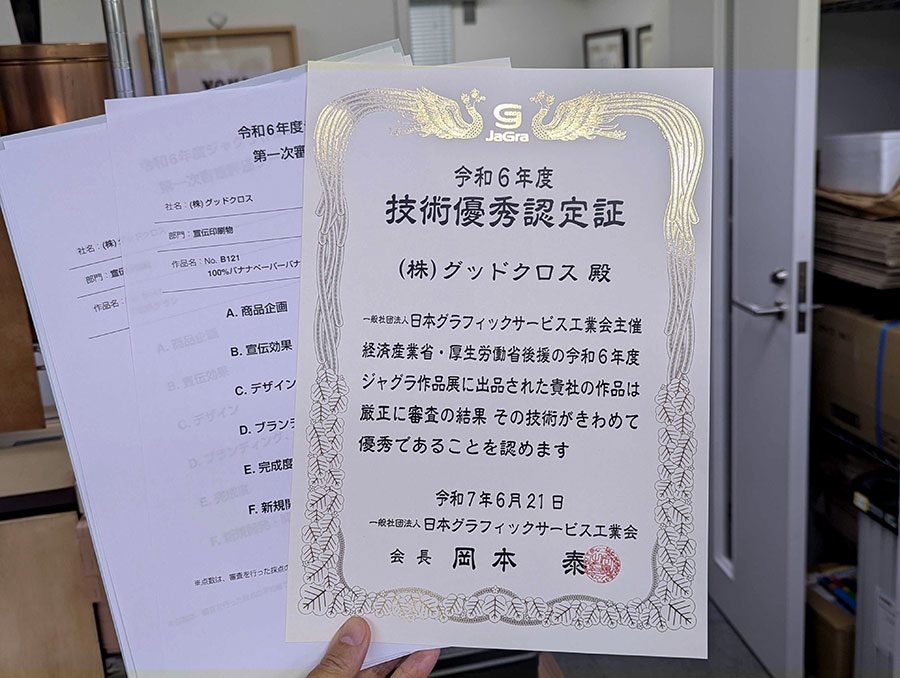 JaGra
令和6年度
技術優秀認定証
(株)グッドクロス 殿
一般社団法人日本グラフィックサービス工業会主催
経済産業省・厚生労働省後援の令和6年度
ジャグラ作品展に出品された貴社の作品は
厳正に審査の結果 その技術がきわめて
優秀であることを認めます
令和7年6月21日
一般社団法人日本グラフィックサービス工業会
会長 岡本 泰
令和6年度
第一次審
社名:(株)グッドクロス
部門:宣伝印刷物
作品名:No. B121
100%バナナペーパーバナ
A. 商品企画
B. 宣伝効果
C. デザイン
D. ブランデ
E. 完成度
F. 新規開
※点数は、審査を行った採点の
社名:(株)
部門:宣伝
作品名: